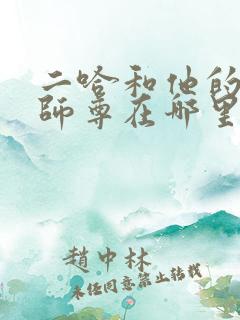 二哈和他的
師尊在哪里
趙中林
未经同意禁止转载